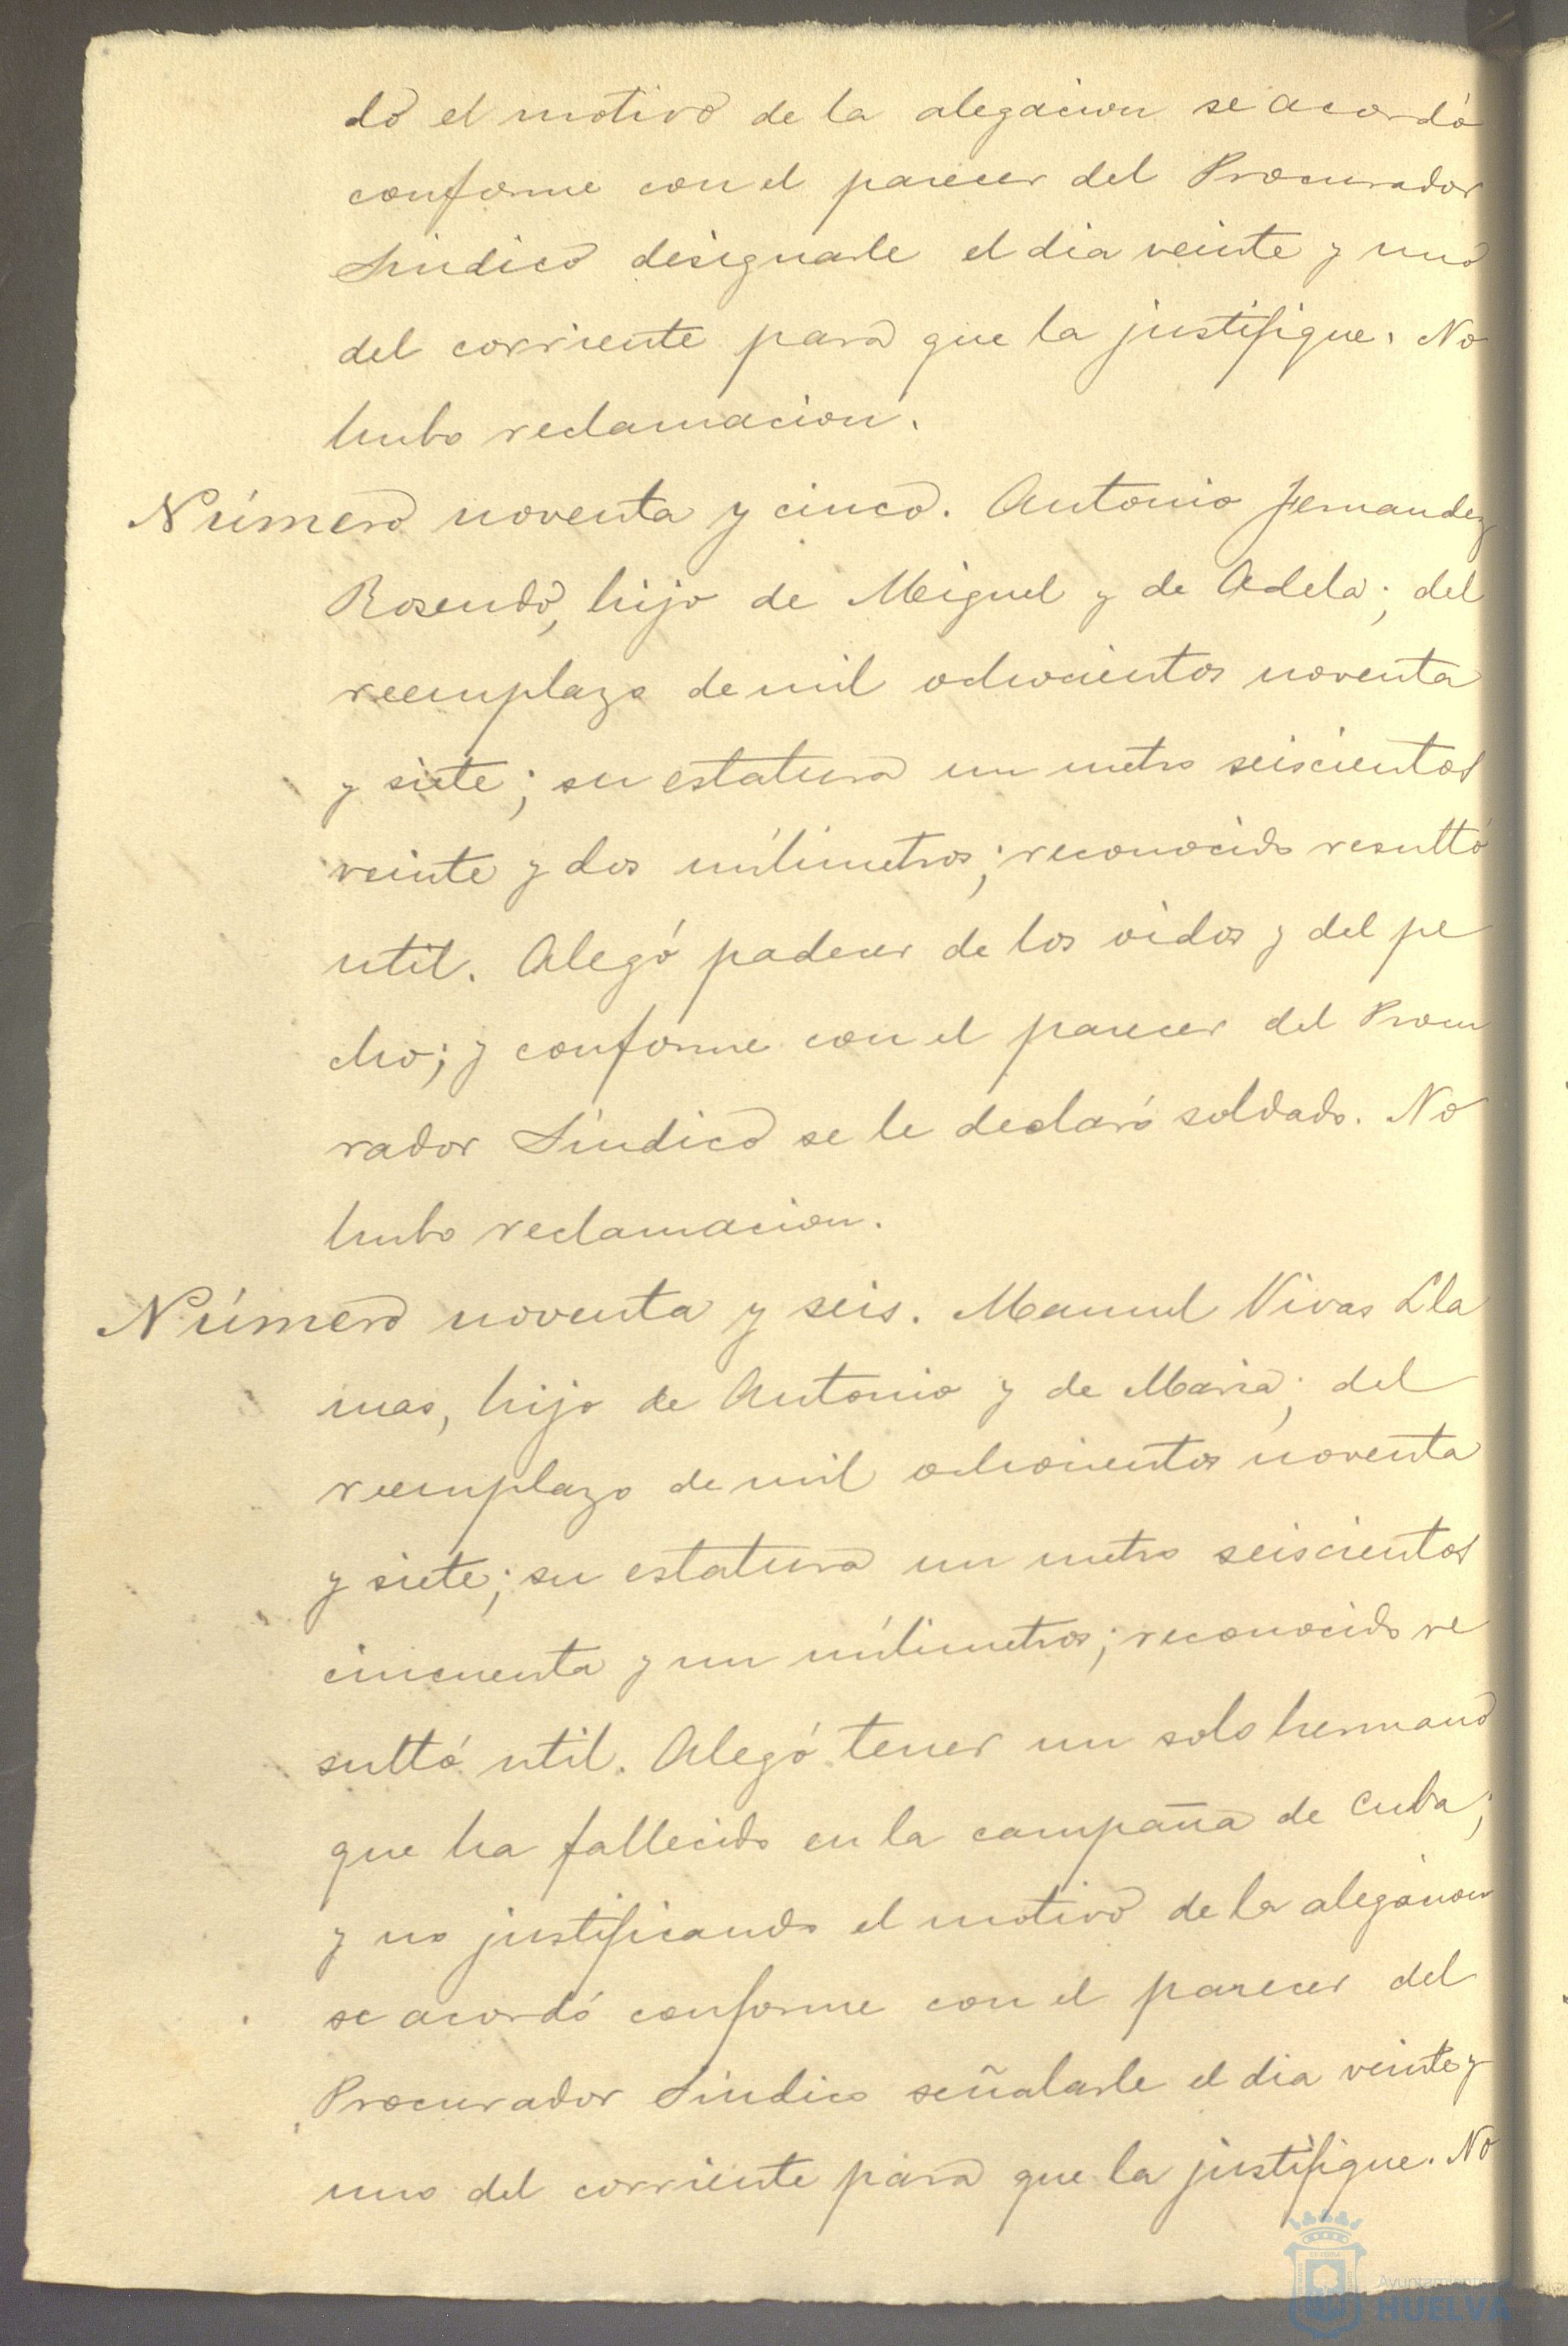 do el motivo de la alegacion se acordó
conforme con el parecer del Procurador
Sindico designarle el dia veinte y uno
del corriente para que la justifique. No
hubo reclamacion.
Número noventa y cinco. Antonio Fernandez
Rosendo, hijo de Miguel y de Adela; del
reemplazo de mil ochocientos noventa
y siete; su estatura un metro seiscientos
veinte y dos milimetros; reconocido resultó
util. Alegó padecer de los oidos y del pe
cho; y conforme con el parecer del Procu
rador Sindico se le declaró soldado. No
hubo reclamacion.
Número noventa y seis. Manuel Vivas Lla
mas, hijo de Antonio y de Maria; del
reemplazo de mil ochocientos noventa
y siete; su estatura un metro seiscientos
cincuenta y un milimetros; reconocido re
sultó util. Alegó tener un solo hermano
que ha fallecido en la campaña de Cuba;
y no justificando el motivo de la alegacion
se acordó conforme con el parecer del
Procurador Sindico señalarle el dia veinte y
uno del corriente para que la justifique. No
Ayuntamiento
HUELVA